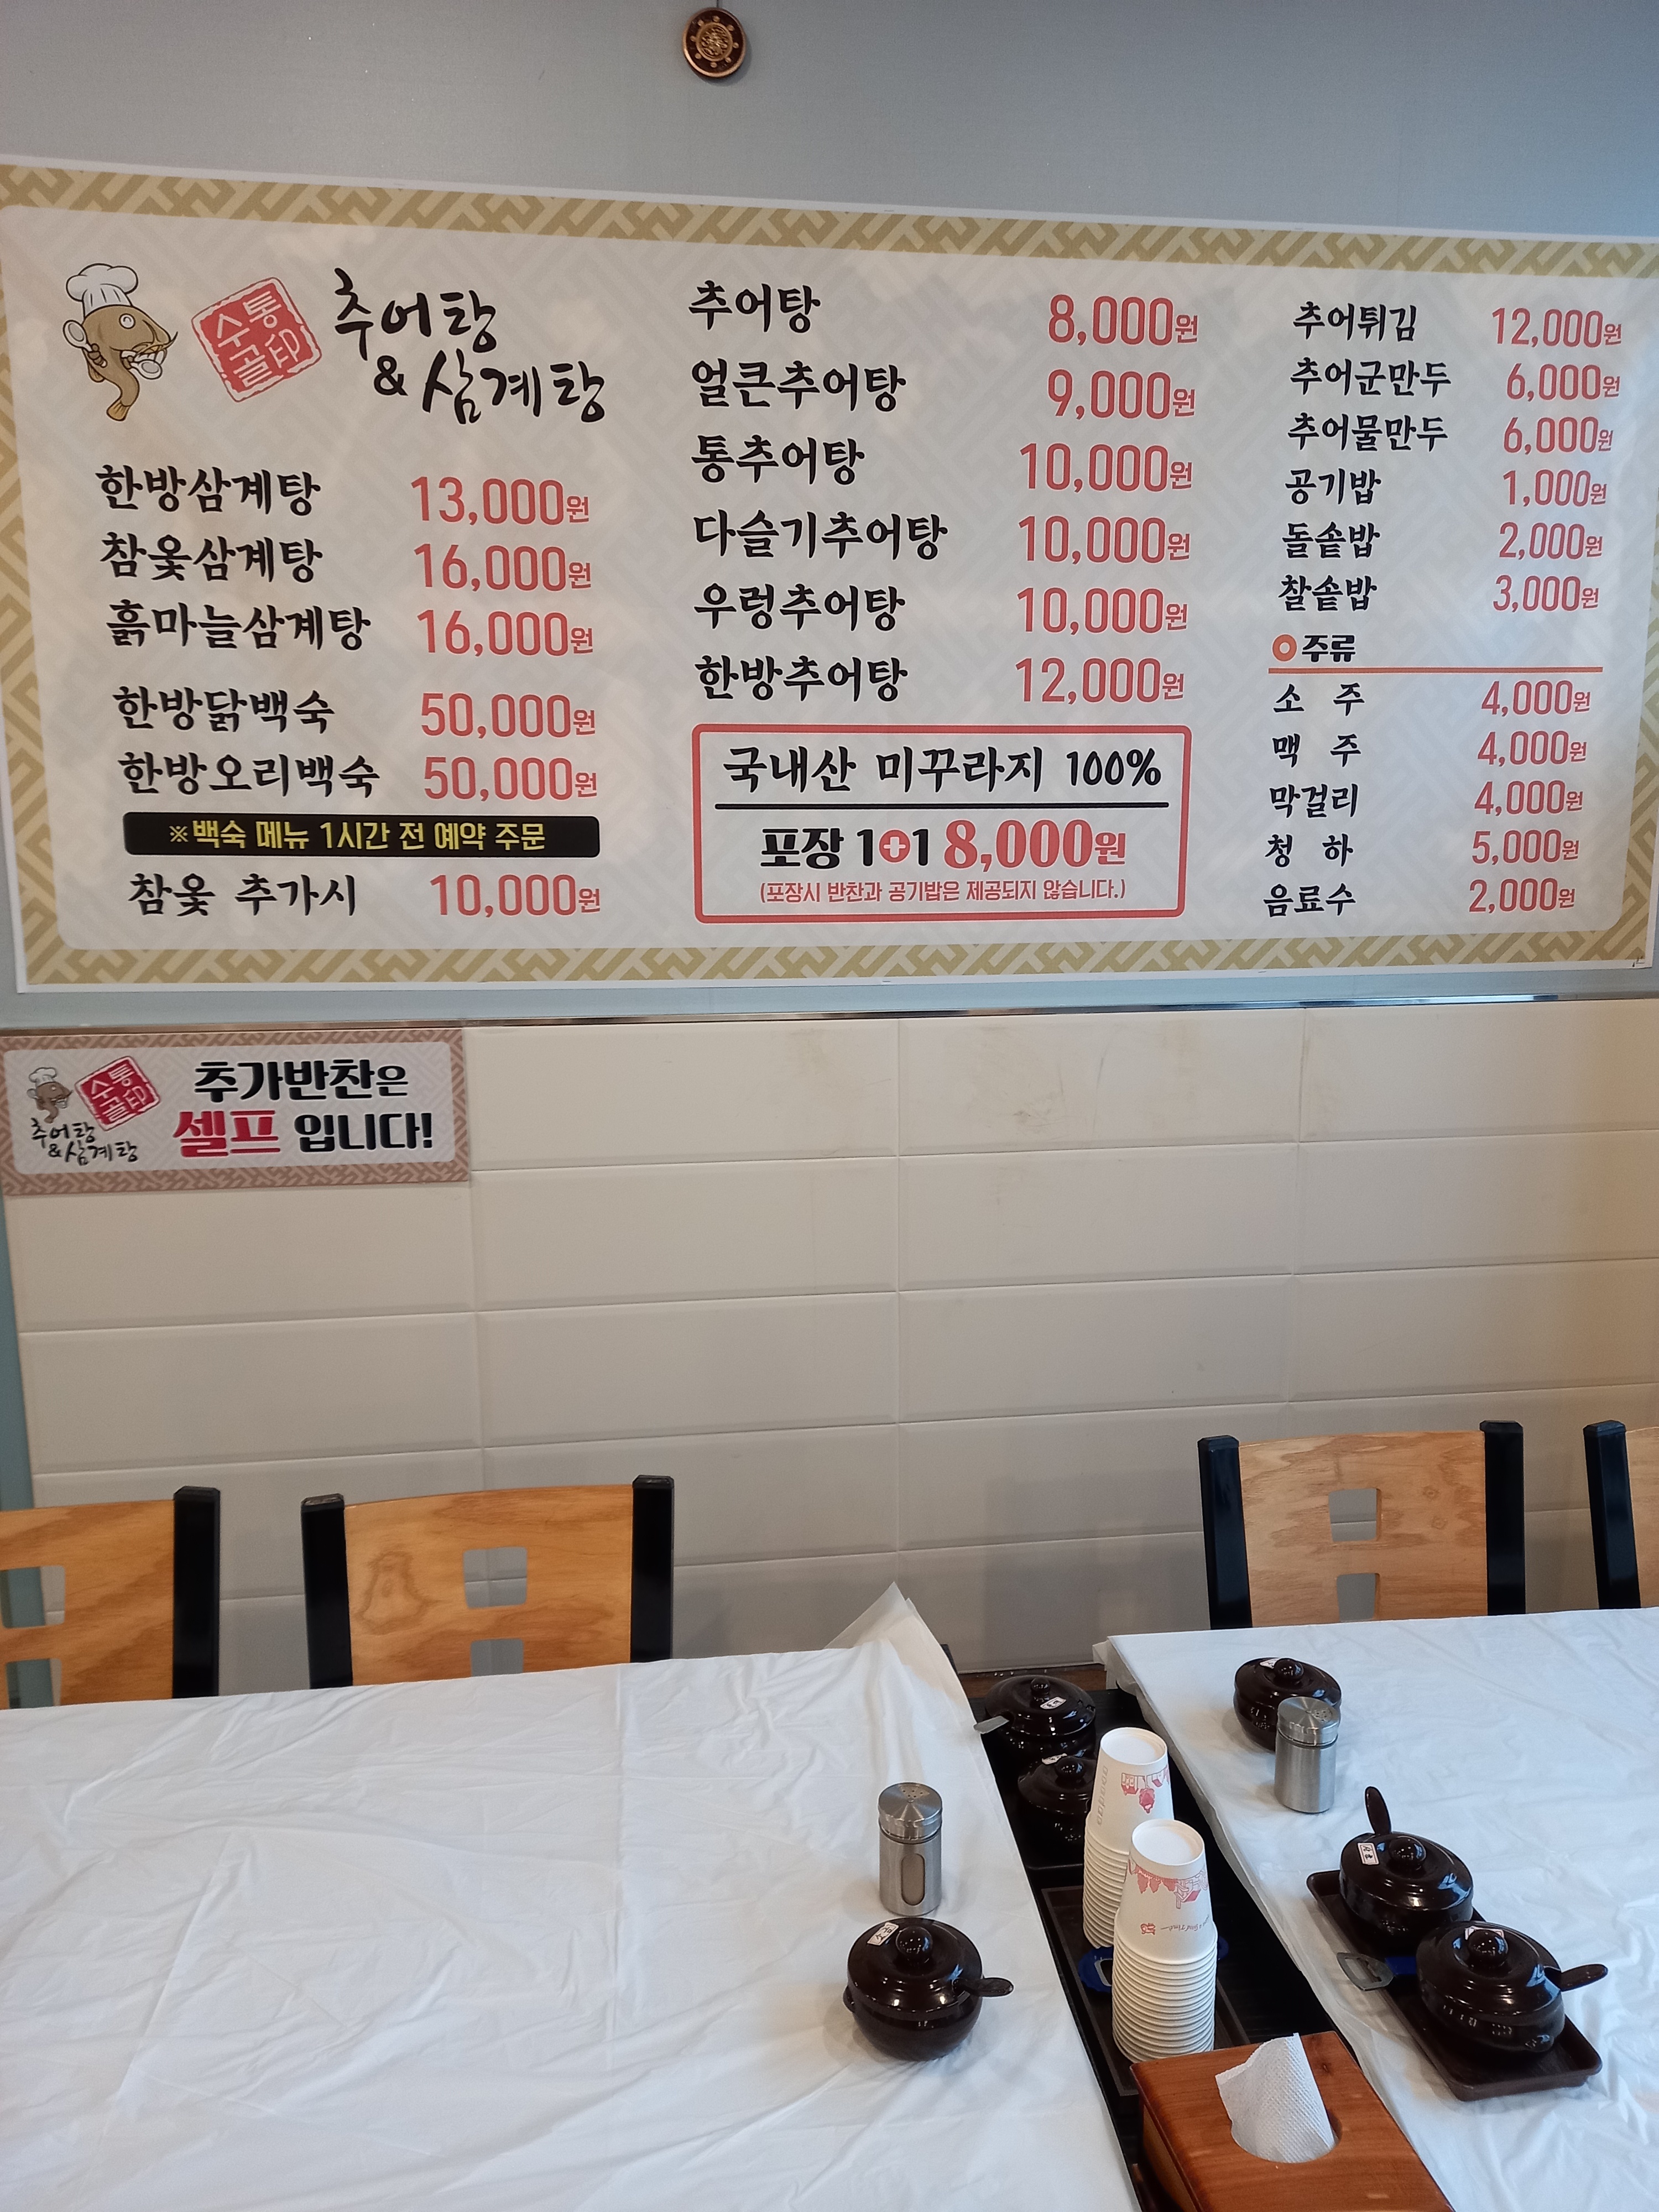 수통골印
추어탕
&삼계탕
한방삼계탕 13,000원
참옻삼계탕 16,000원
흙마늘삼계탕 16,000원
한방닭백숙 50,000원
한방오리백숙 50,000원
※백숙 메뉴 1시간 전 예약 주문
참옻 추가시 10,000원
추어탕 8,000원
얼큰추어탕 9,000원
통추어탕 10,000원
다슬기추어탕 10,000원
우렁추어탕 10,000원
한방추어탕 12,000원
국내산 미꾸라지 100%
포장 1+1 8,000원
(포장시 반찬과 공기밥은 제공되지 않습니다.)
추어튀김 12,000원
추어군만두 6,000원
추어물만두 6,000원
공기밥 1,000원
돌솥밥 2,000원
찰솥밥 3,000원
주류
소 주 4,000원
맥 주 4,000원
막걸리 4,000원
청 하 5,000원
음료수 2,000원
수통골印
추어탕
&삼계탕
추가반찬은
셀프 입니다!